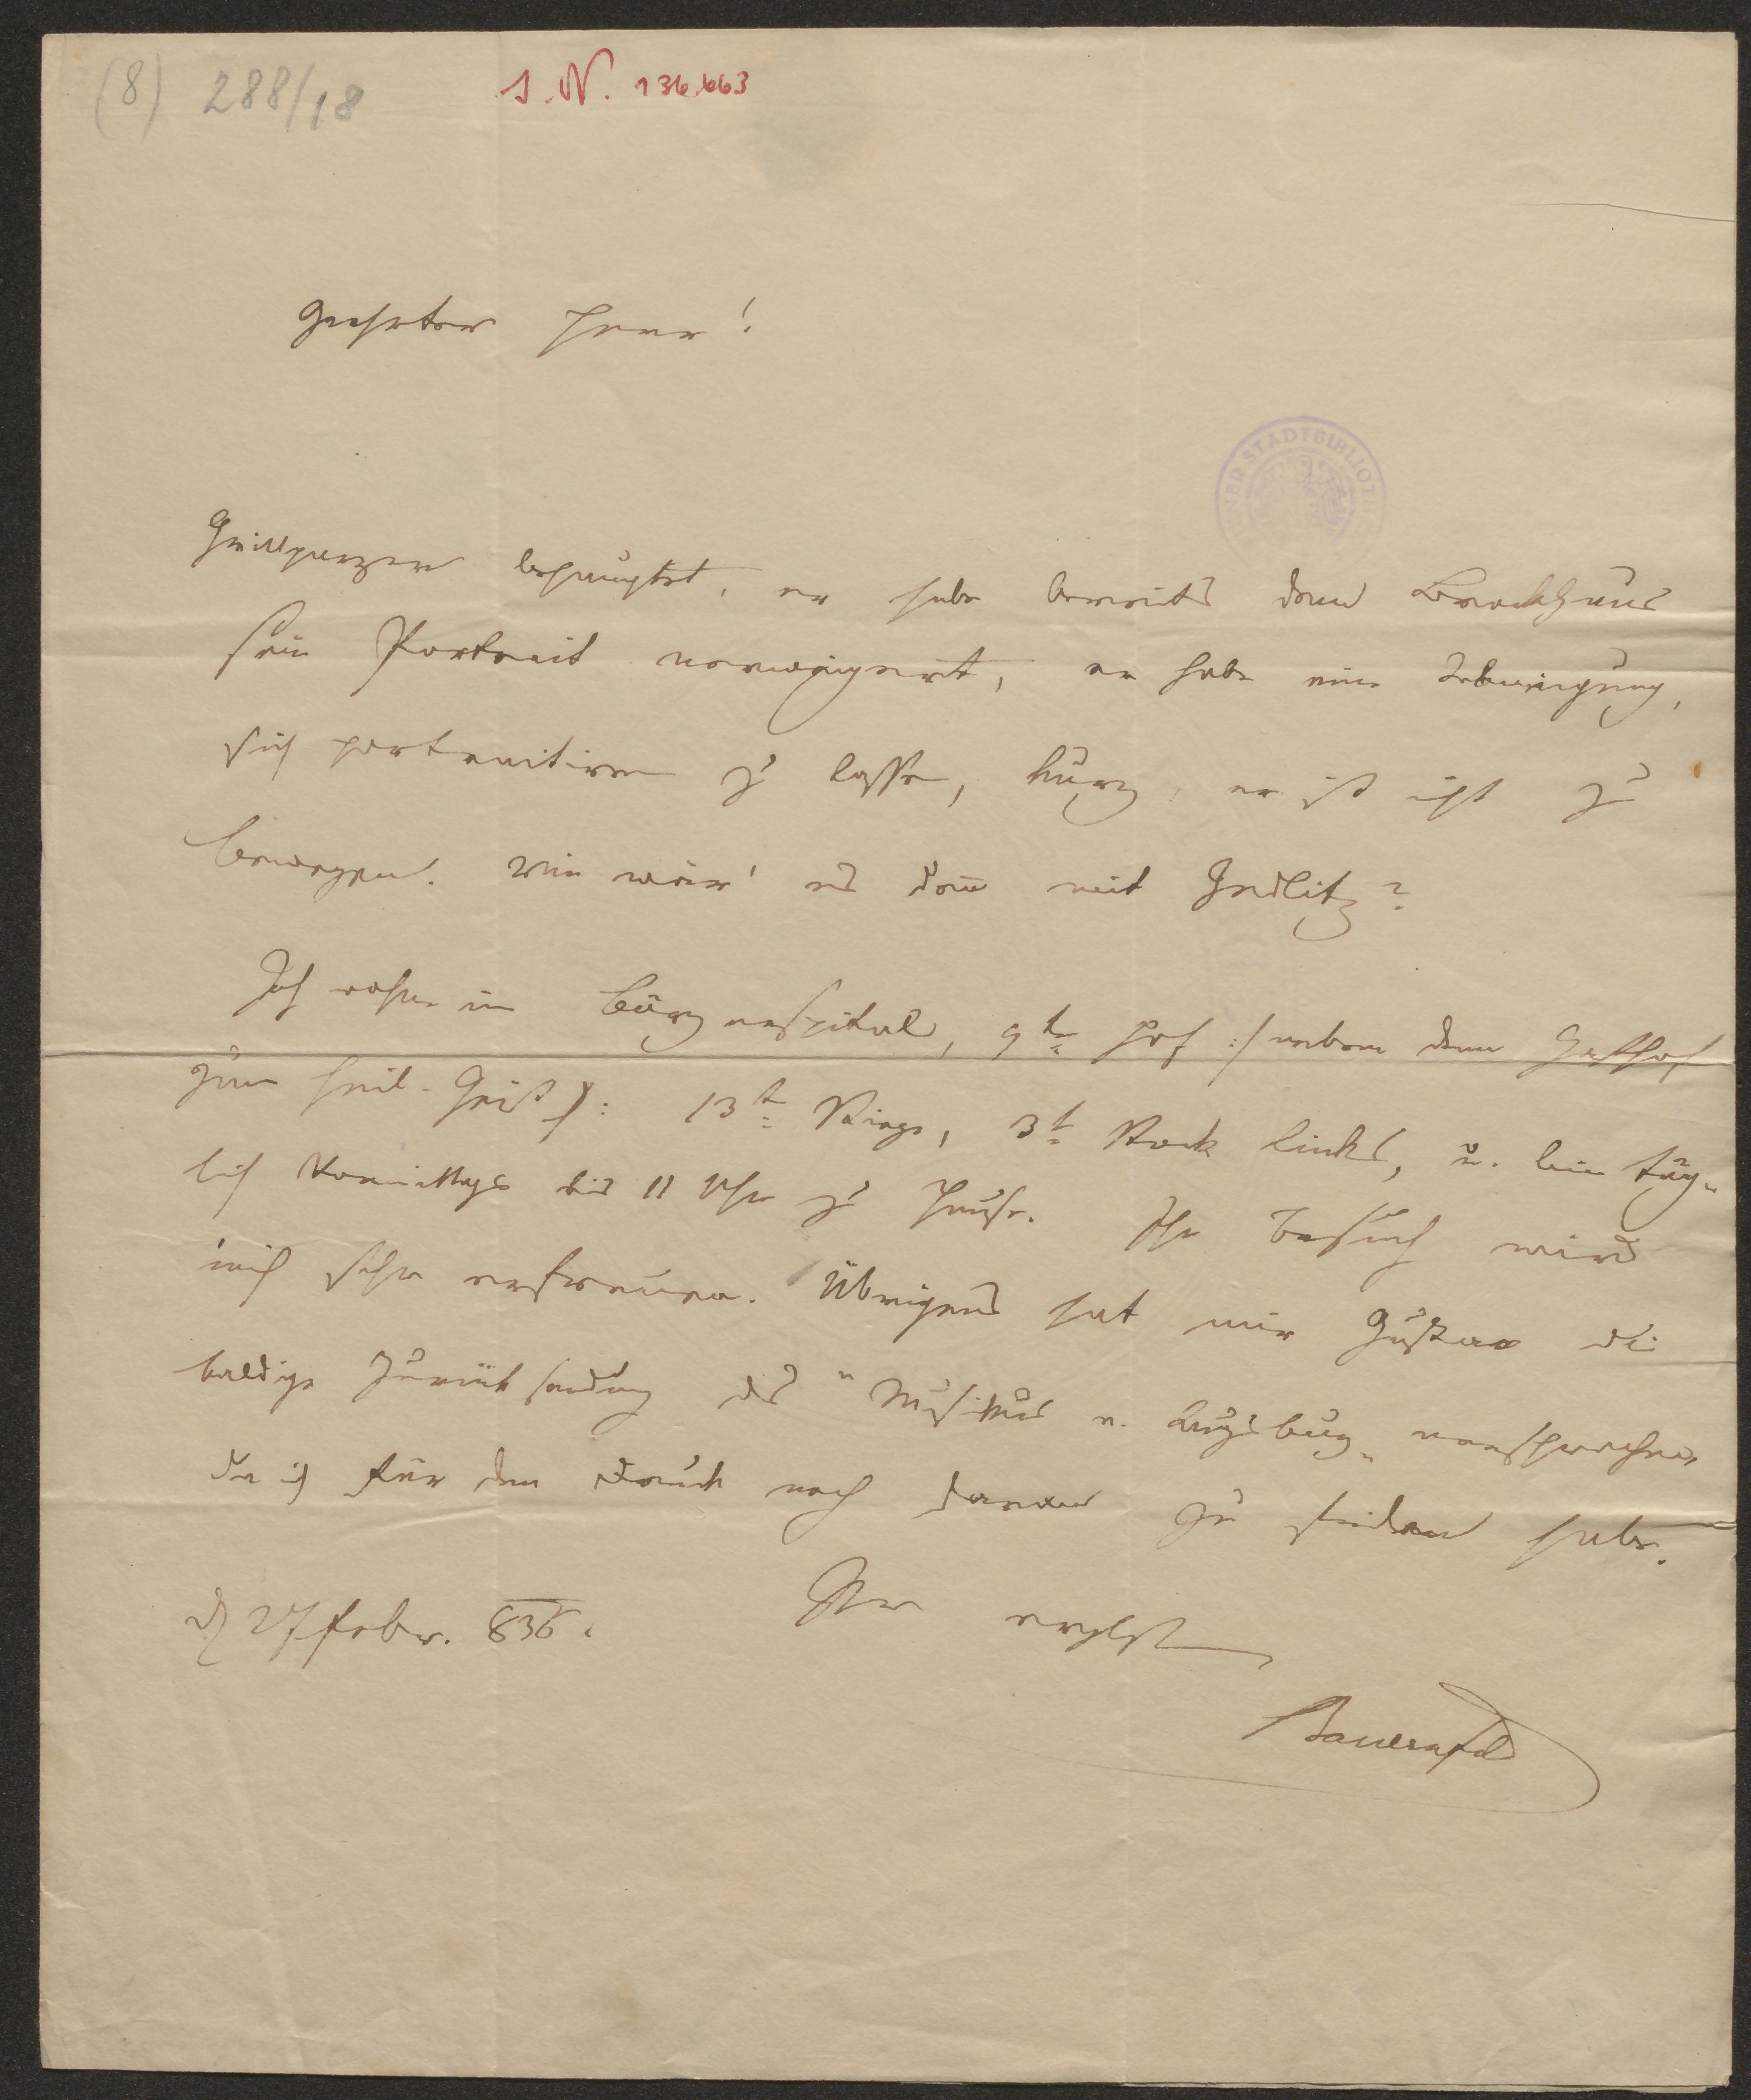 (8) 288/18 I.N. 136.663
Geehrter Herr!
WIENER STADTBIBLIOTHEK
Grillparzer behauptet, er habe bereits dem Brockhaus
sein Portrait verweigert, er habe eine
sich portraitiren zu lassen, kurz, er ist nicht zu
bewegen. Wie wär' es denn mit Zedlitz?
Ich wohne im Bürgerspital, 9te Hof :/ neben dem Gasthof
zum heil. Geist /: 13te Stiege, 3t Stock links, u. bin täg-
lich Vormittags bis 11 Uhr zu Hause. Ihr Besuch wird
mich sehr erfreuen. Übrigens hat mir Gustav die
baldige Zurücksendung des "Musikus v. Augsburg" versprochen,
da ich für den Druck noch daran zu feilen habe.
Ihr ergbst
d 27 Febr. 836.
Bauernfeld